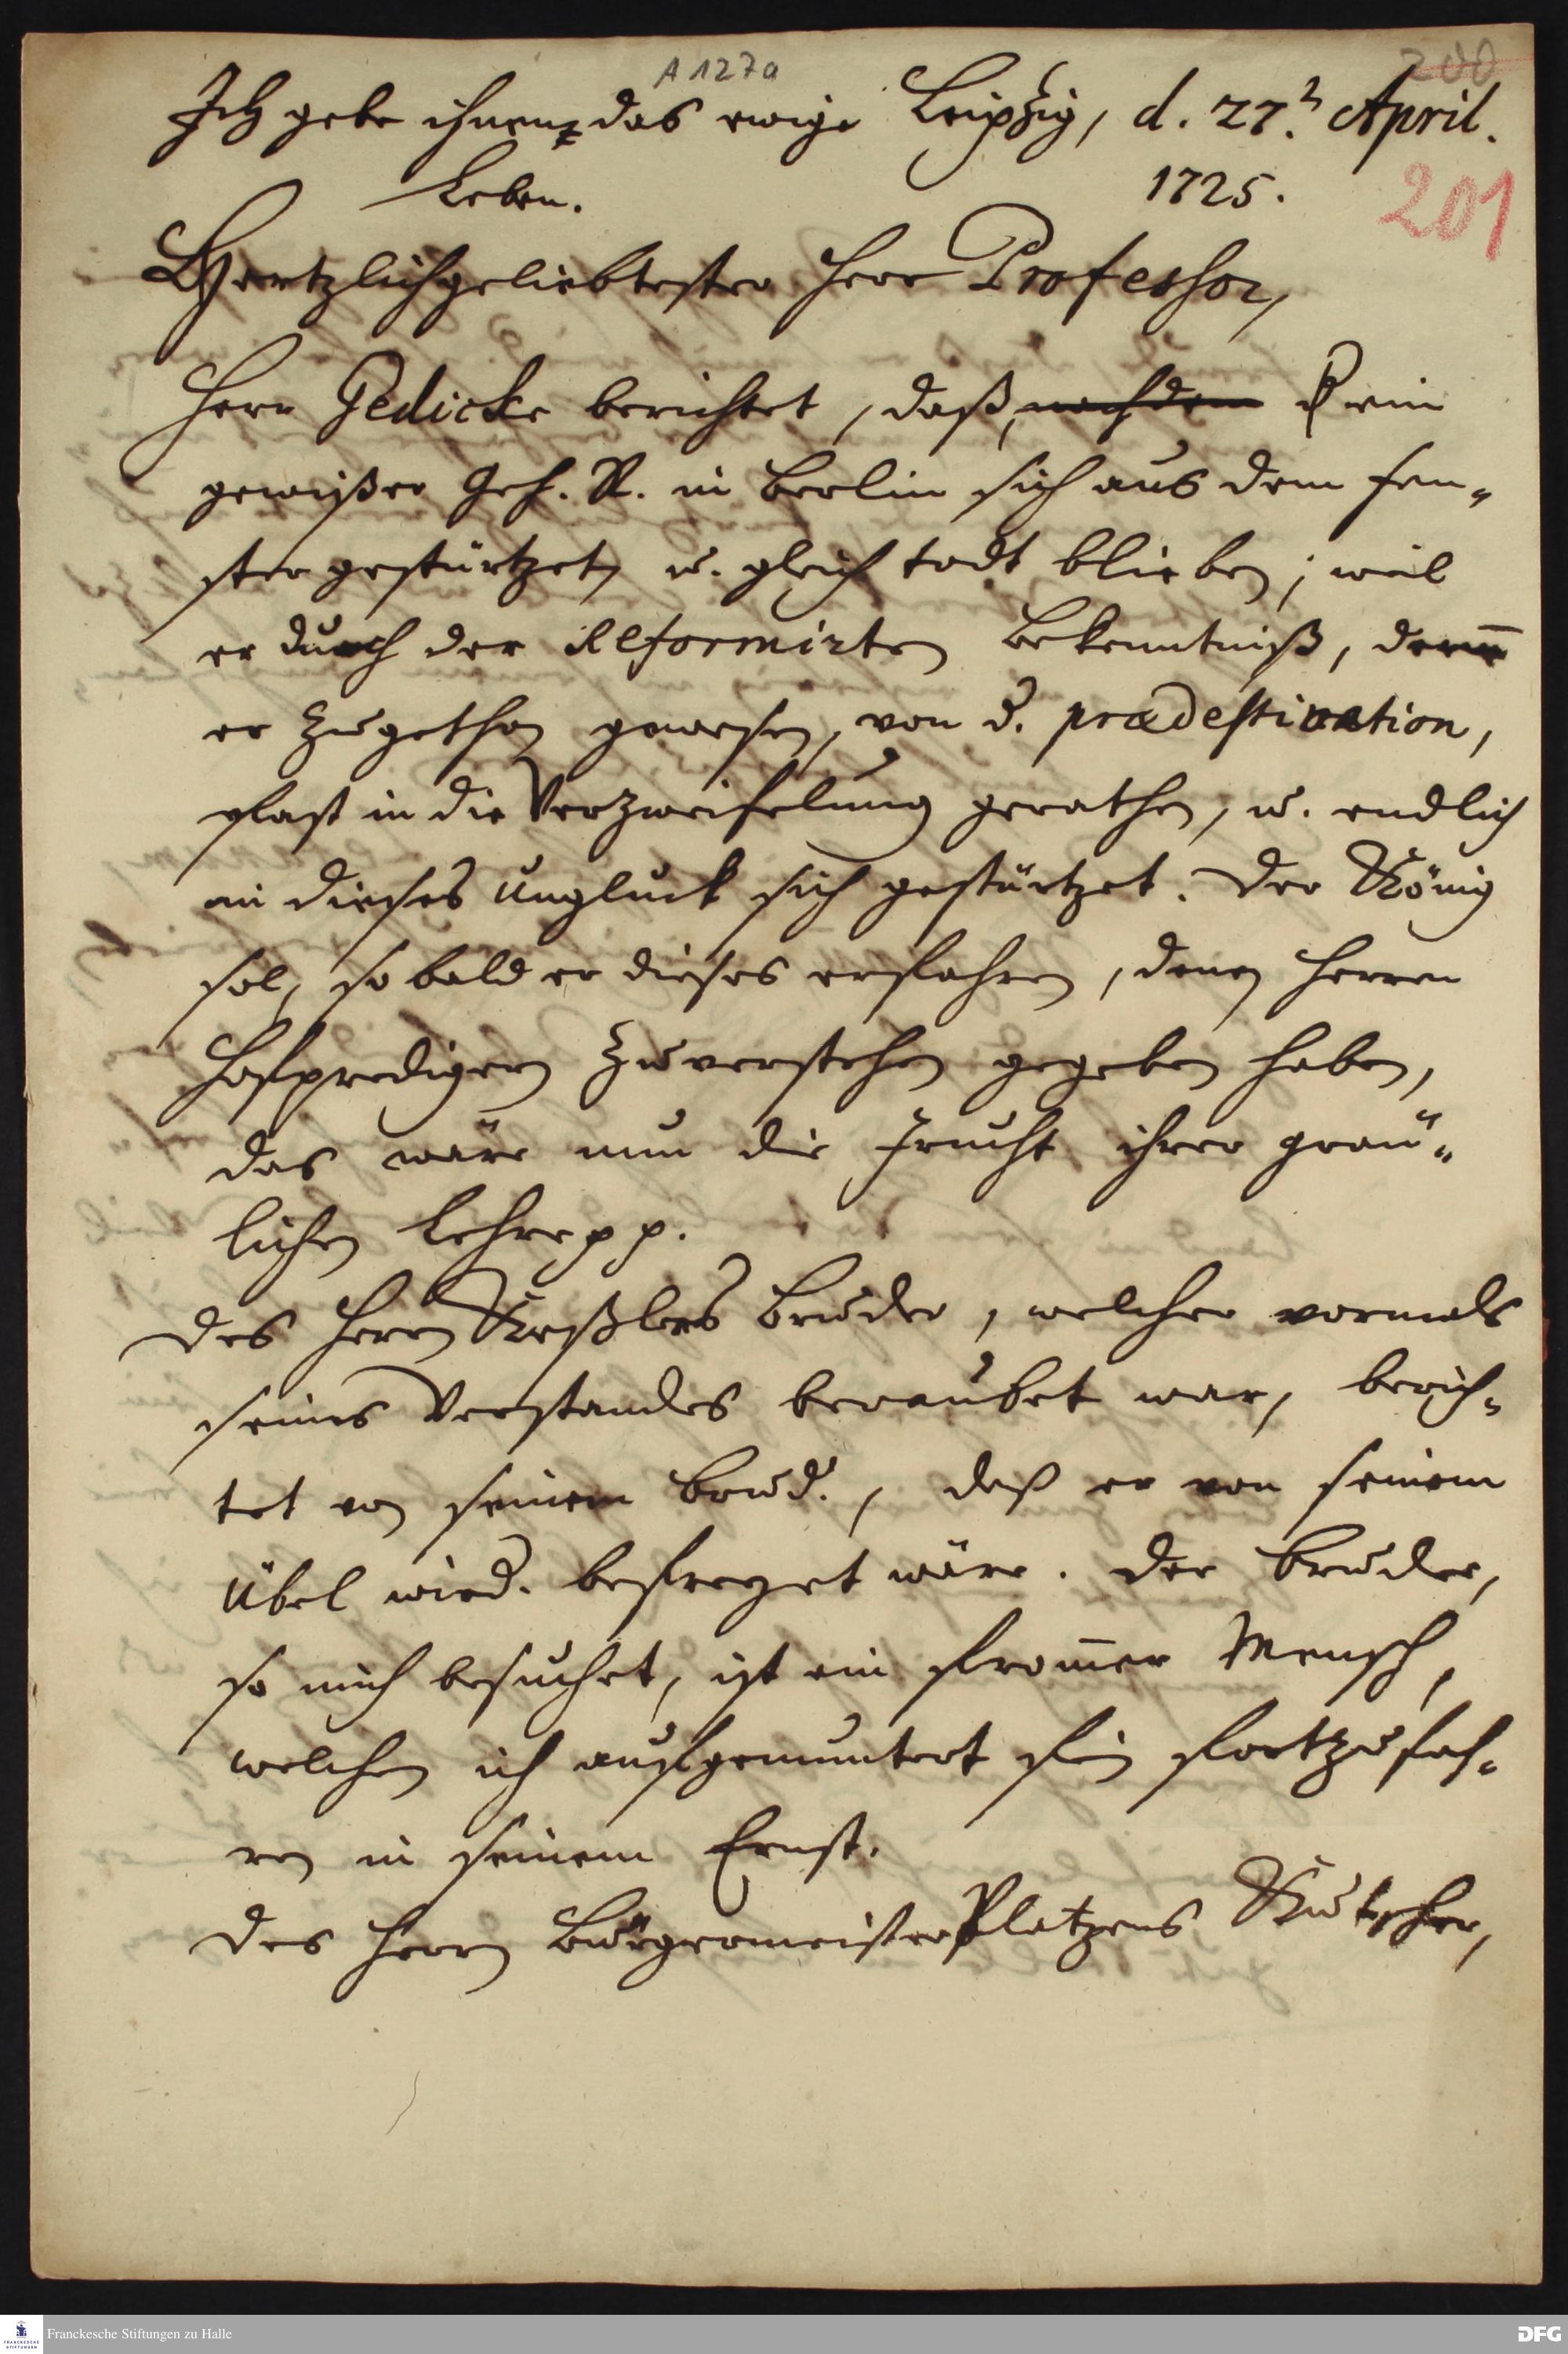 A 127a
200
Ich gebe ihnen das ewige Leipzig, d. 27. April.
Leben. 1725.
201
Hertzlichgeliebtester Herr Professor,
Herr Gedicke berichtet, daß, nachdem ein
gewißer Geh. R. in Berlin sich aus dem fen-
ster gestürtzet, u. gleich todt blieben; weil
er durch der Reformirten Bekenntniß, dem
er zugethan gewesen, von d. prædestination,
fast in die Verzweifelung gerathen, u. endlich
in dieses Ungluck sich gestürtzet. Der König
sol, so bald er dieses erfahren, denen Herren
Hofpredigern zuverstehen gegeben haben,
das wäre nun die Frucht ihrer greu-
lichen Lehre pp.
Des Herrn Keßlers Bruder, welcher vormals
seines Verstandes beraubet war, berich-
tet von seinem Brud., daß er von seinem
Übel wied. befreyet wäre. Der Bruder,
so mich besuchet, ist ein from̅er Mensch,
welchen ich aufgemuntert fein fortzufah-
ren in seinem Ernst.
Des Herrn Bürgermeister Platzens Kutscher,
Franckesche Stiftungen zu Halle
DFG